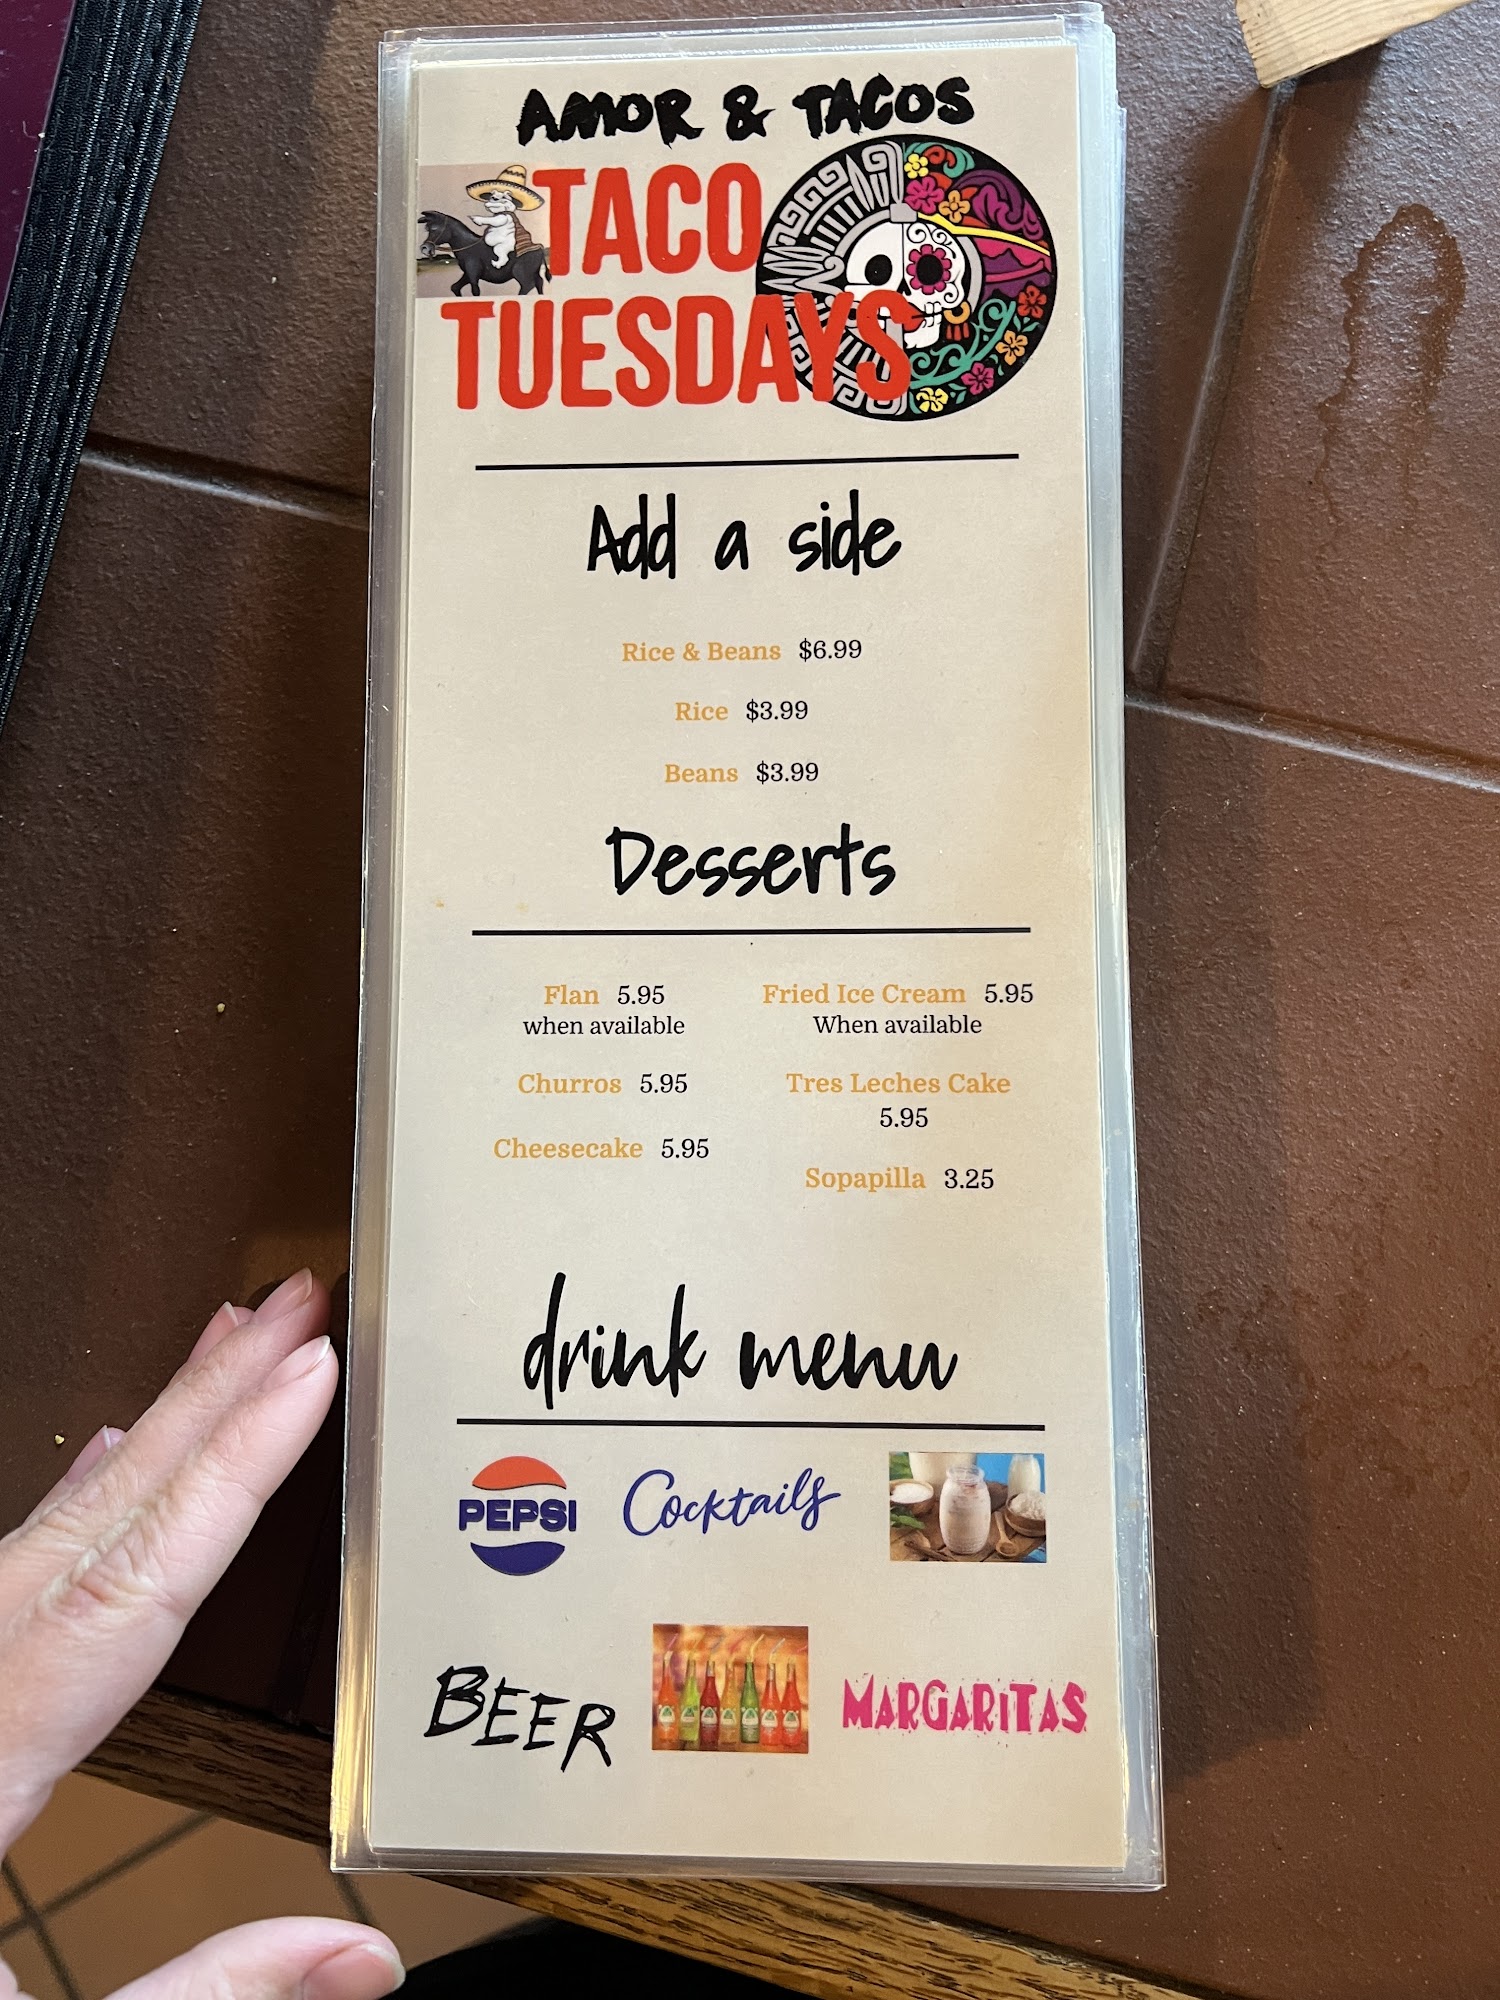 AMOR & TACOS
TACO
TUESDAYS
Add a side
Rice & Beans $6.99
Rice $3.99
Beans $3.99
Desserts
Flan 5.95
when available
Churros 5.95
Cheesecake 5.95
Fried Ice Cream 5.95
When available
Tres Leches Cake
5.95
Sopapilla 3.25
drink menu
PEPSI
Cocktails
BEER
MARGARITAS